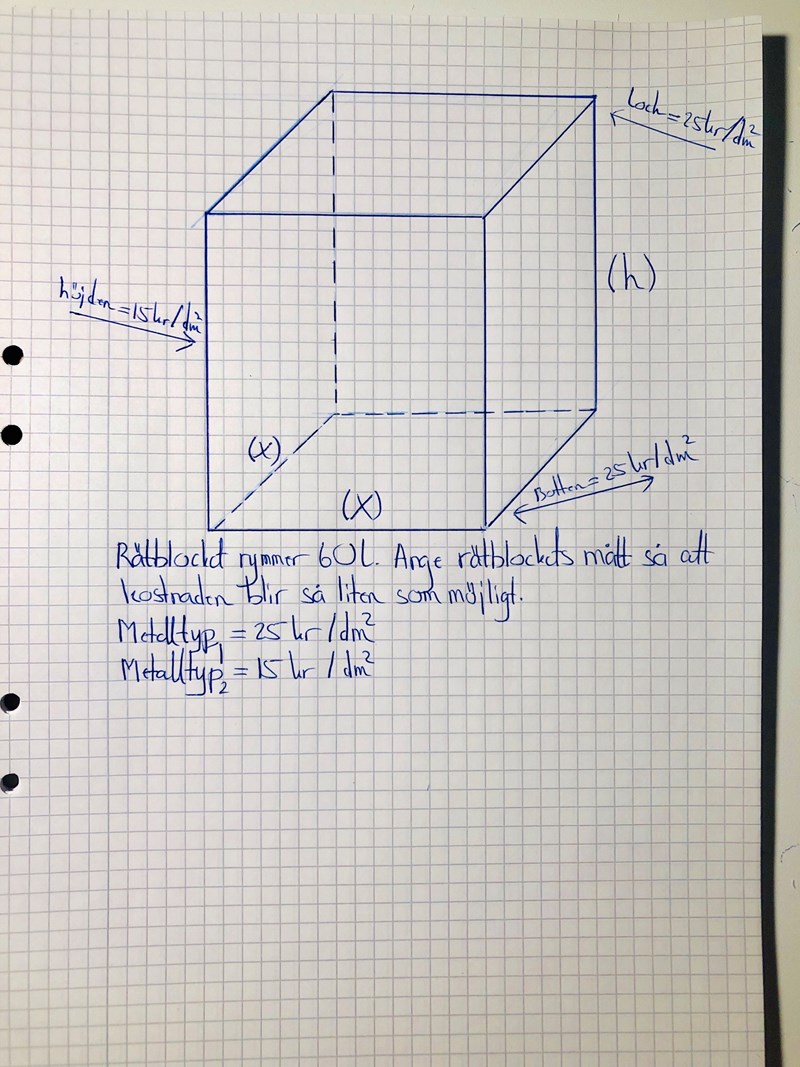 Lock = 25kr/dm²
(h)
höjden = 15kr/dm²
(x)
(X)
Botten = 25 kr/dm²
Rätblocket rymmer 60l. Ange rätblockets mått så att
kostnaden blir så liten som möjligt.
Metalltyp₁ = 25 kr/dm²
Metalltyp₂ = 15 kr/dm²